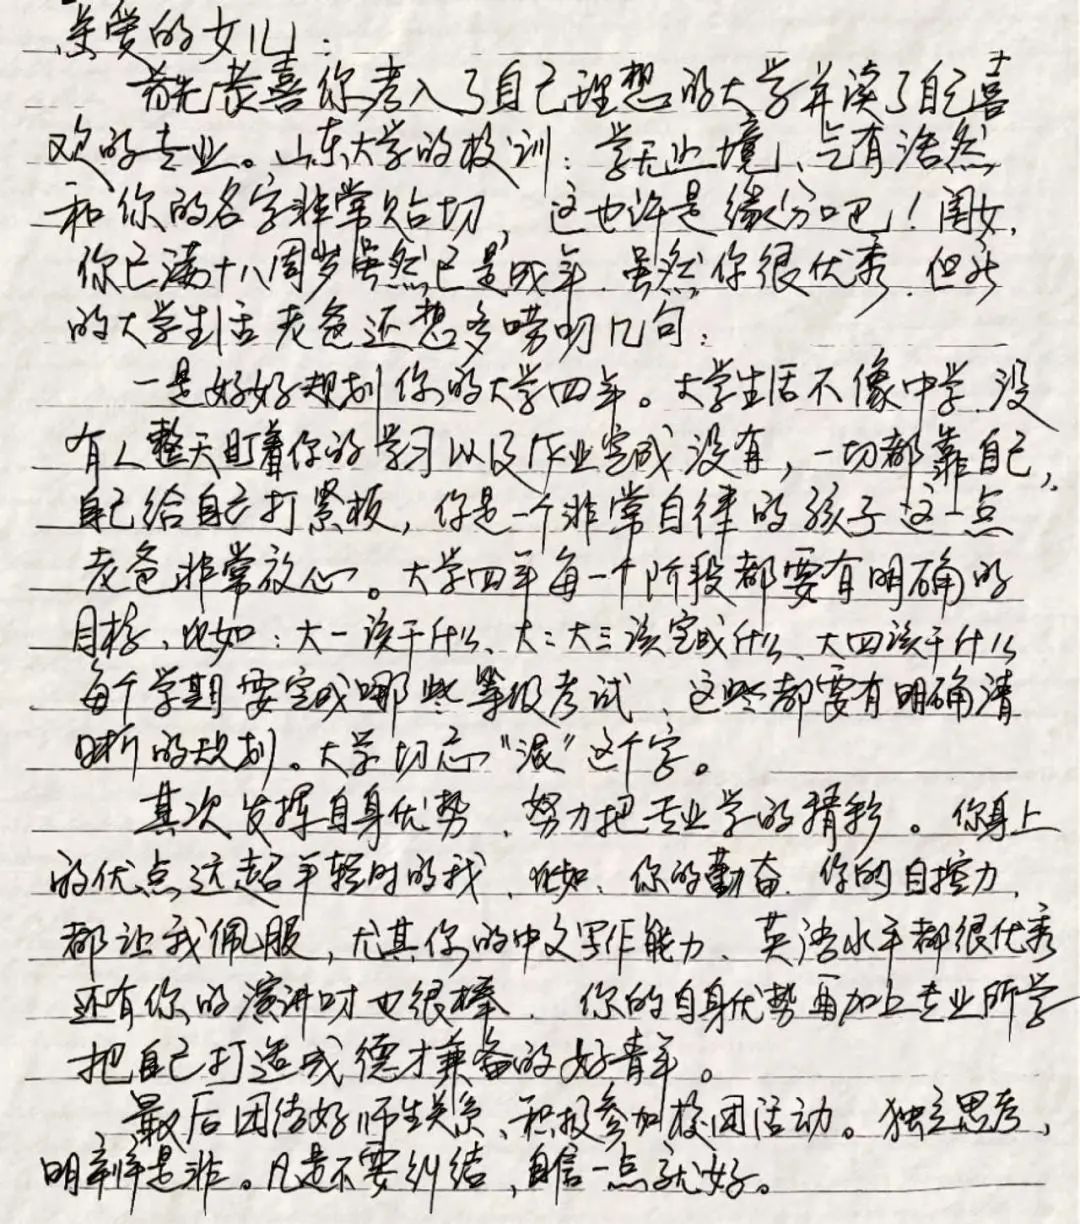 亲爱的女儿：
首先恭喜你考入了自己理想的大学并读了自己喜
欢的专业。山东大学的校训：学无止境、气有浩然
和你的名字非常贴切，这也许是缘分吧！闺女，
你已满十八周岁虽然已是成年、虽然你很优秀、但新
的大学生活老爸还想多唠叨几句：
一是好好规划你的大学四年。大学生活不像中学、没
有人整天盯着你的学习以及作业完成没有，一切都靠自己，
自己给自己打紧板，你是一个非常自律的孩子这一点
老爸非常放心。大学四年每一个阶段都要有明确的
目标、比如：大一该干什么、大二大三该完成什么、大四该干什么
每个学期要完成哪些等级考试、这些都要有明确清
晰的规划。大学切忌“混”这个字。
其次发挥自身优势、努力把专业学的精彩。你身上
的优点远超年轻时的我、比如、你的勤奋、你的自控力、
都让我佩服，尤其你的中文写作能力、英语水平都很优秀
还有你的演讲口才也很棒、你的自身优势再加上专业所学
把自己打造成德才兼备的好青年。
最后团结好师生关系、积极参加校团活动。独立思考，
明辨是非。凡是不要纠结，自信一点就好。